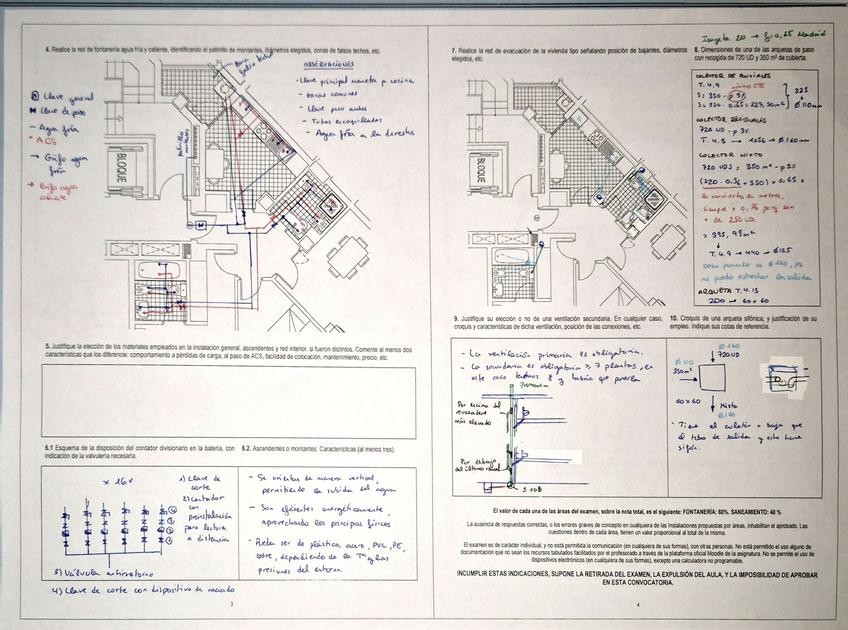 4. Realice la red de fontanería agua fría y caliente, identificando el patinillo de montantes, diámetros elegidos, zonas de falsos techos, etc.
falso techo
OBSERVACIONES
- Llave principal maneta p cocina
- zonas comunes
- Llave paso
- Tubos encoquillados
- Agua fría a la derecha
Llave general
Llave de paso
- Agua fría
- ACS
→ Grifo agua
fría
→ Grifo agua
BLOQUE
5. Justifique la elección de los materiales empleados en la instalación general, ascendentes y red interior, si fueron distintos. Comente al menos dos
características que los diferencie: comportamiento a pérdidas de carga, al paso de ACS, facilidad de colocación, mantenimiento, precio, etc.
6.1 Esquema de la disposición del contador divisionario en la batería, con
indicación de la valvulería necesaria.
x 16v
1) Llave de
corte
2) Contador
con
preinstalación
para lectura
a distancia
3) Válvula antirretorno
4) Llave de corte con dispositivo de vaciado
6.2. Ascendentes o montantes. Características (al menos tres).
- Se orientan de manera vertical,
permitiendo la subida del agua
- Son eficientes energéticamente,
aprovechando los principios físicos
- Pueden ser de plástico, acero, PVC, PE,
cobre, dependiendo de la Tª y las
presiones del entorno.
3
7. Realice la red de evacuación de la vivienda tipo señalando posición de bajantes, diámetros
elegidos, etc.
BLOQUE
Isoyeta 20 → 0,65 Madrid
8. Dimensiones de una de las arquetas de paso
con recogida de 720 UD y 350 m² de cubierta.
COLECTOR DE PLUVIALES
T. 4.9
S = 350 - p 3%
S = 350 · 0.65 = 227,50 m²
323
Ø 110mm
COLECTOR RESIDUALES
720 UD - p 3%
T. 4.5 → 1056 → Ø 160 mm
COLECTOR MIXTO
720 UDS = 350 m² - p 3%
(720 · 0.36 + 350) · 0,65 =
lo convierto en metros,
siempre × 0,36 porq son
+ de 250 UD.
= 395,98 m²
T. 4.9 → 440 → Ø 125
no puedo estrechar la salida
ARQUETA T. 4.13
200 → 60 x 60
9. Justifique su elección o no de una ventilación secundaria. En cualquier caso,
croquis y características de dicha ventilación, posición de las conexiones, etc.
- La ventilación primaria es obligatoria.
- La secundaria es obligatoria ≥ 7 plantas, en
este caso tenemos 8 y habría que ponerla
Primaria
Por encima del
más elevado
Por debajo
del último ramal
10. Croquis de una arqueta sifónica, y justificación de su
empleo. Indique sus cotas de referencia.
Ø 160
720 UD
Ø 110
350 m²
60 x 60
Mixto
Ø 160
- Tiene el culatín + bajo que
el tubo de salida y esto hace
sifón.
El valor de cada una de las áreas del examen, sobre la nota total, es el siguiente: FONTANERÍA: 60%. SANEAMIENTO: 40 %
La ausencia de respuestas correctas, o los errores graves de concepto en cualquiera de las Instalaciones propuestas por áreas, inhabilitan el aprobado. Las
cuestiones dentro de cada área, tienen un valor proporcional al total de la misma.
El examen es de carácter individual, y no está permitida la comunicación (en cualquiera de sus formas), con otras personas. No está permitido el uso alguno de
documentación que no sean los recursos tabulados facilitados por el profesorado a través de la plataforma oficial Moodle de la asignatura. No se permite el uso de
dispositivos electrónicos (en cualquiera de sus formas), excepto una calculadora no programable.
INCUMPLIR ESTAS INDICACIONES, SUPONE LA RETIRADA DEL EXAMEN, LA EXPULSIÓN DEL AULA, Y LA IMPOSIBILIDAD DE APROBAR
EN ESTA CONVOCATORIA.
4